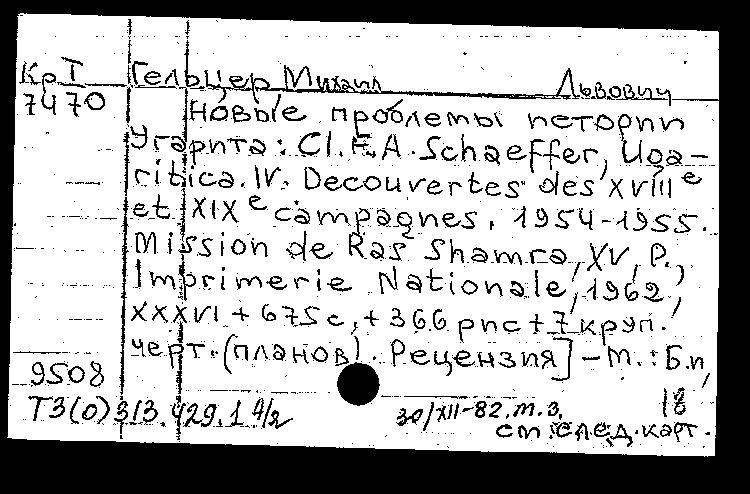 КрТ Гельцер Михаил Львович
7470 Новые проблемы истории
Угарита: Cl.F.A. Schaeffer, Uga-
ritica. IV. Decouvertes des XVIIIe
et XIXe campagnes, 1954-1955.
Mission de Ras Shamra, XV, P.,
Imprimerie Nationale, 1962,
XXXVI + 675 с, + 366 рис + 7 круп.
черт. (планов). Рецензия] – М.: Б.и,
9508
ТЗ(0)313.429.1 4/2 30/XII-82.м.з. 18
см. след. карт.